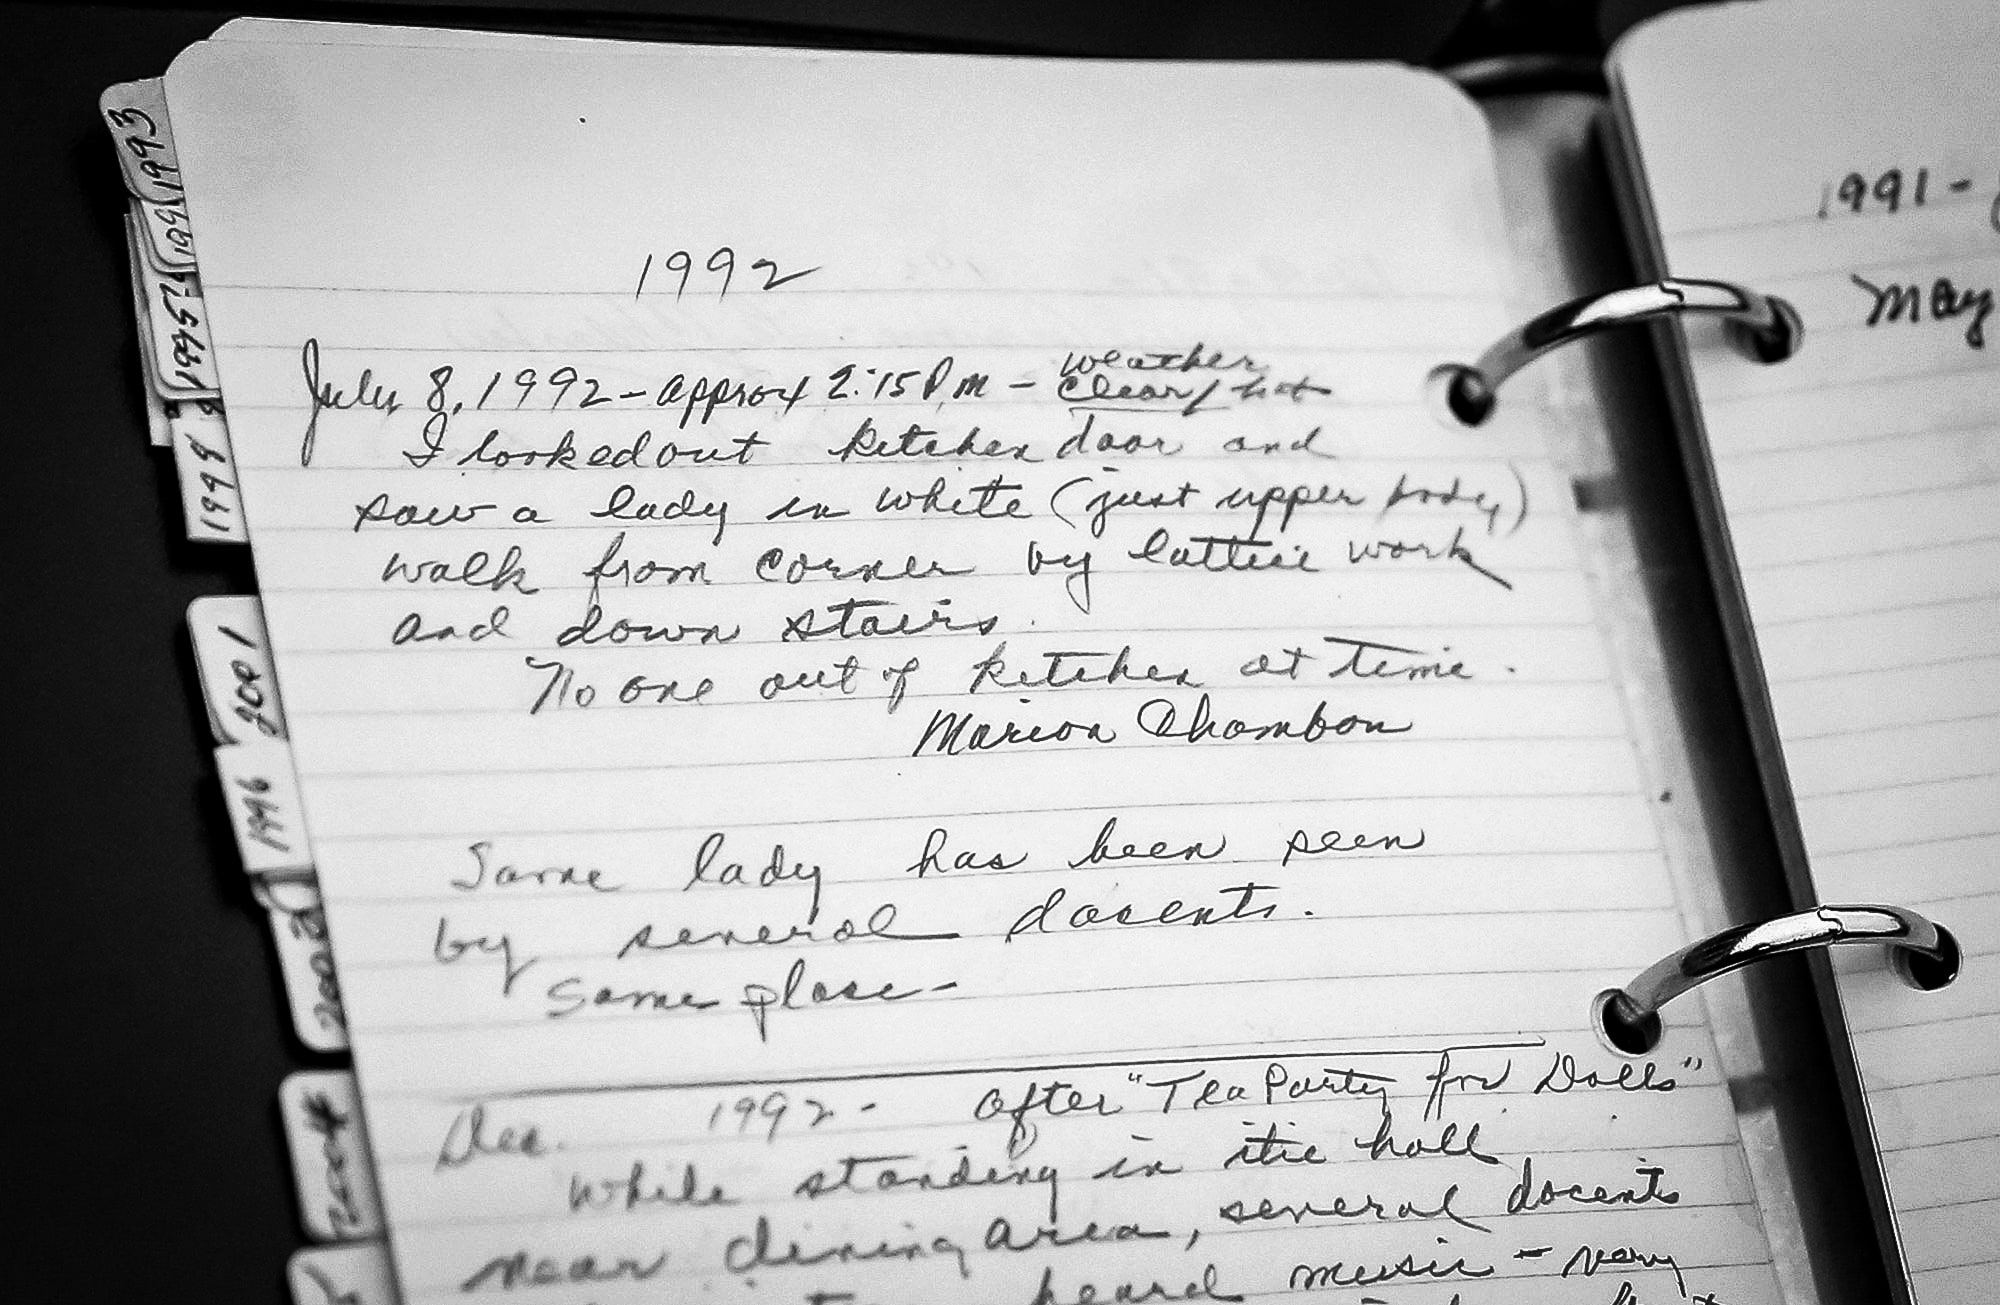 1992
July 8, 1992 - approx 2:15 P.m - weather clear/hot
I looked out kitchen door and
saw a lady in white (just upper body)
walk from corner by lattice work
and down stairs.
No one out of kitchen at time.
Marion Chambon
Same lady has been seen
by several docents.
Same place -
Dec. 1992 - after "Tea Party for Dolls"
While standing in the hall
near dining area, several docents
heard music - very
1993
199
1995
1999
2001
1996
2002
2004
1991 -
May